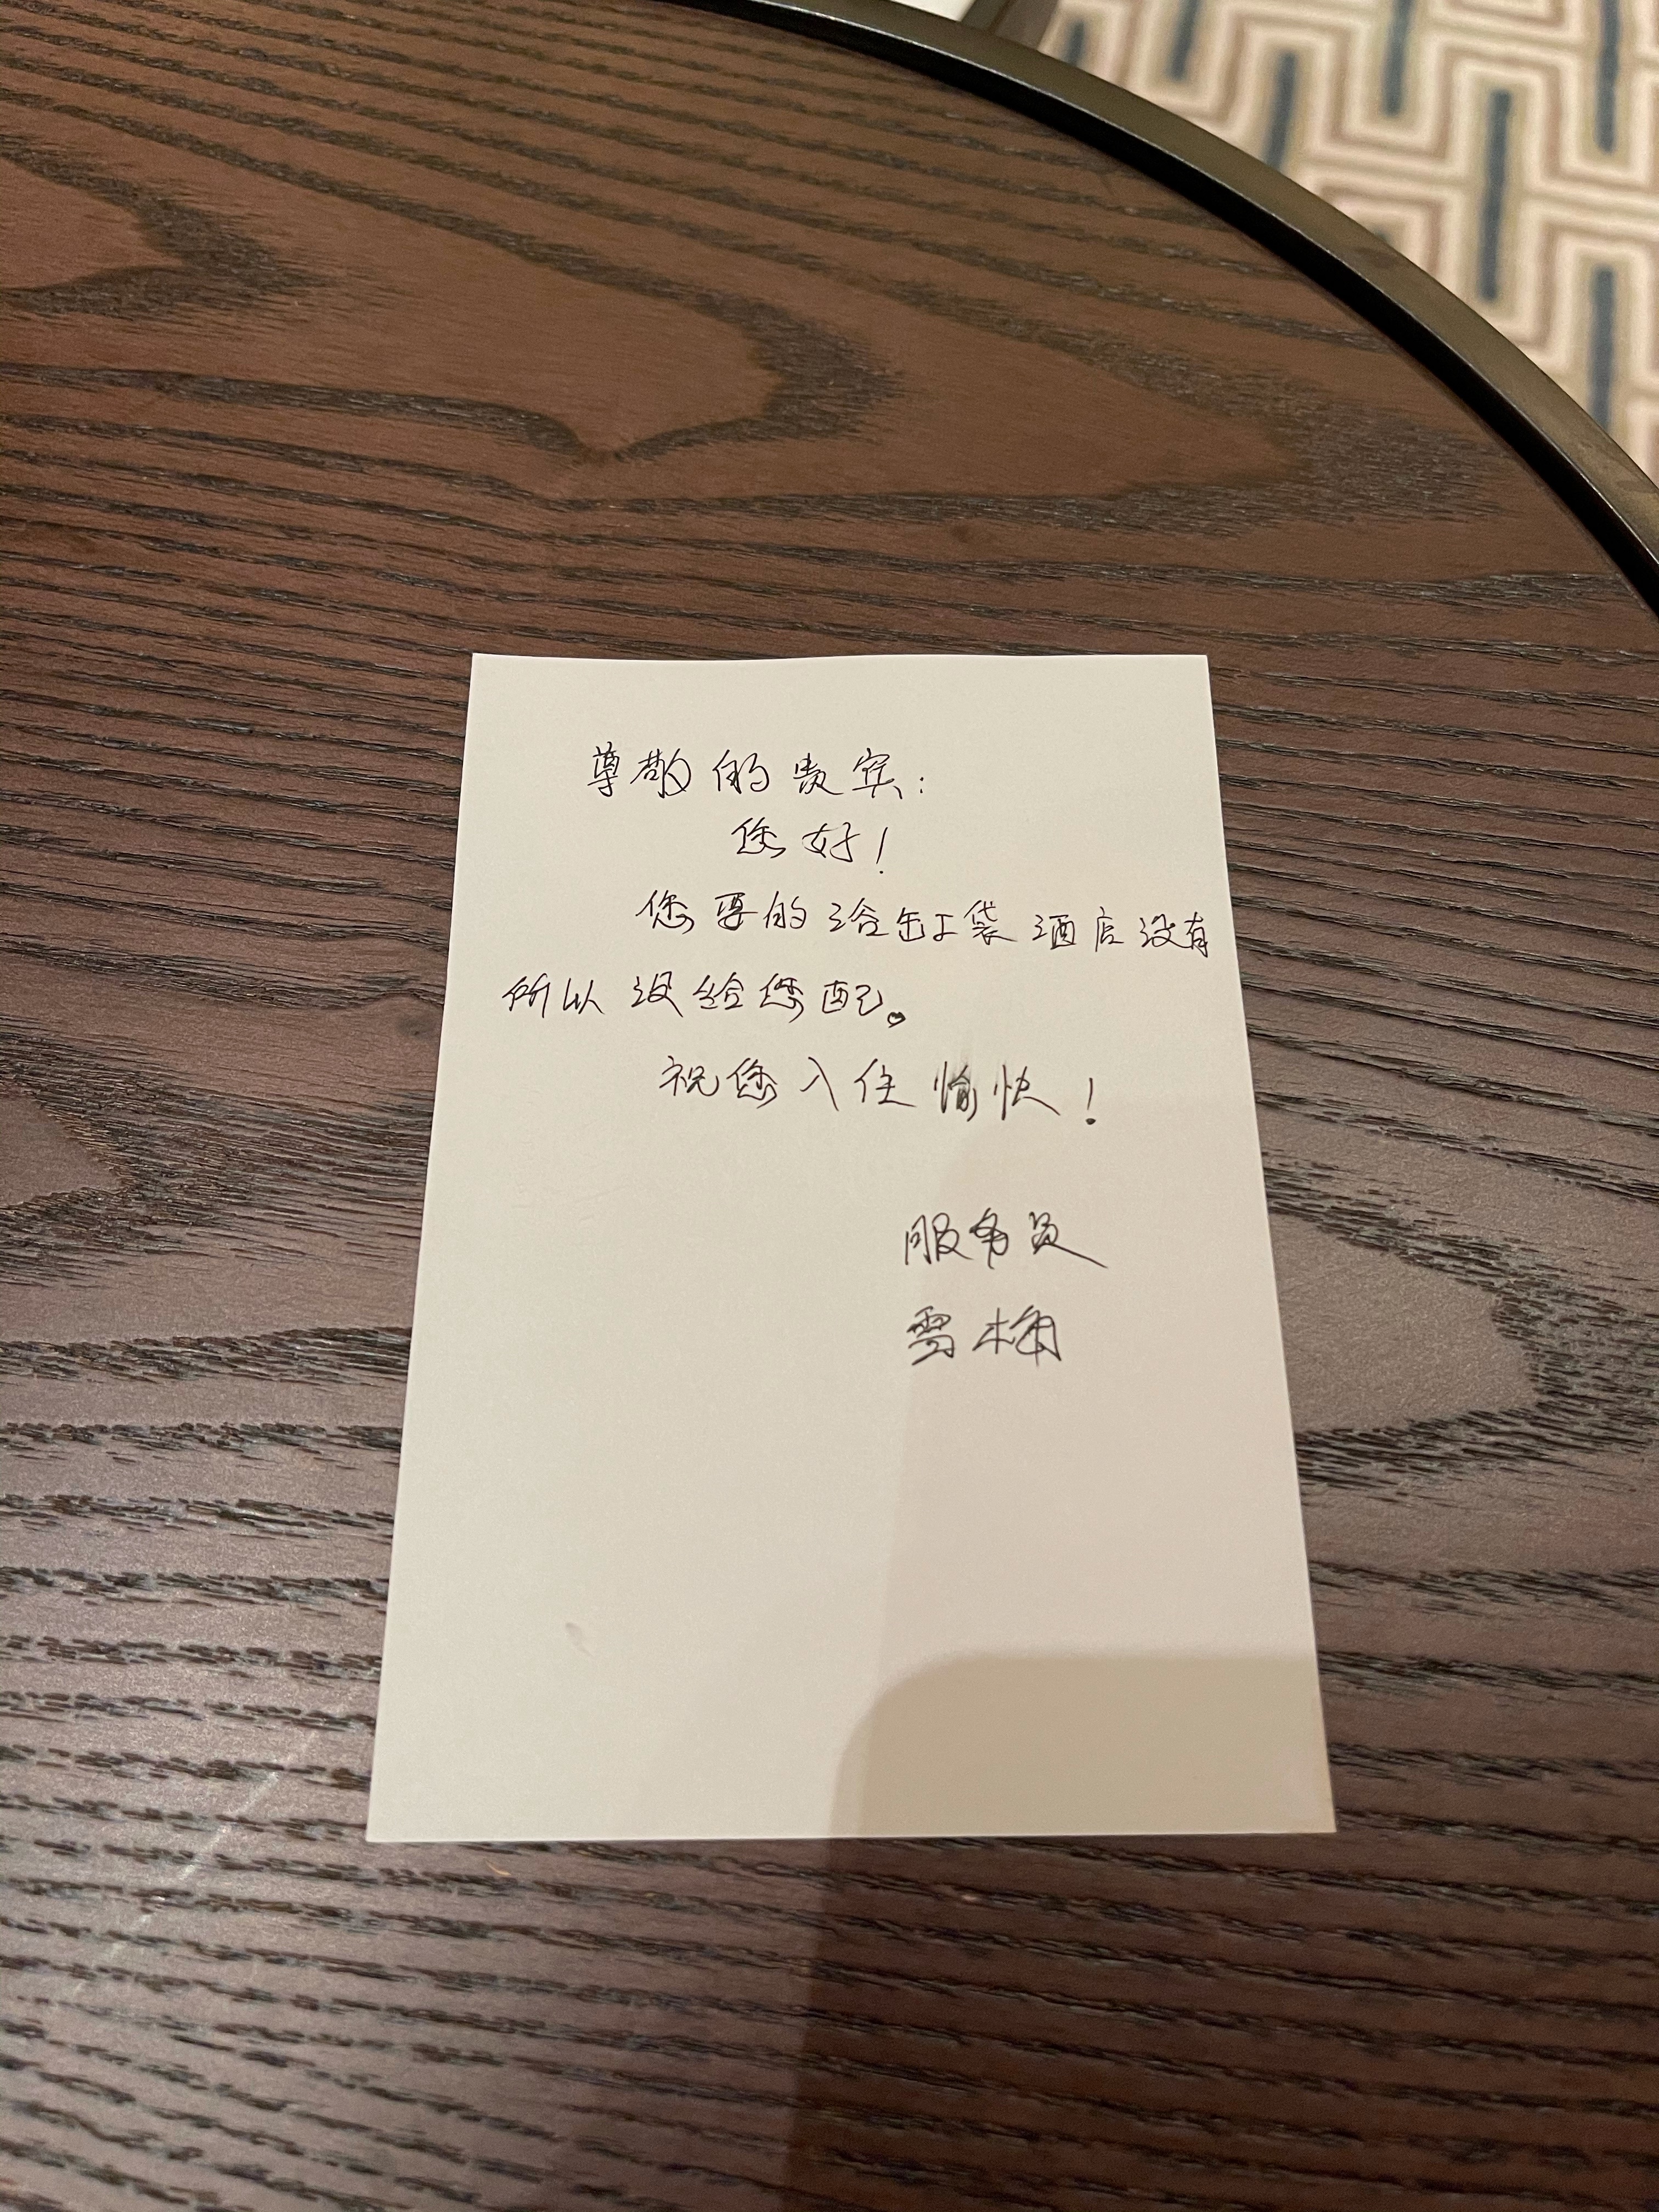 尊敬的贵宾:
您好!
您要的浴缸袋酒店没有
所以没给您配。
祝您入住愉快!
服务员
雪梅